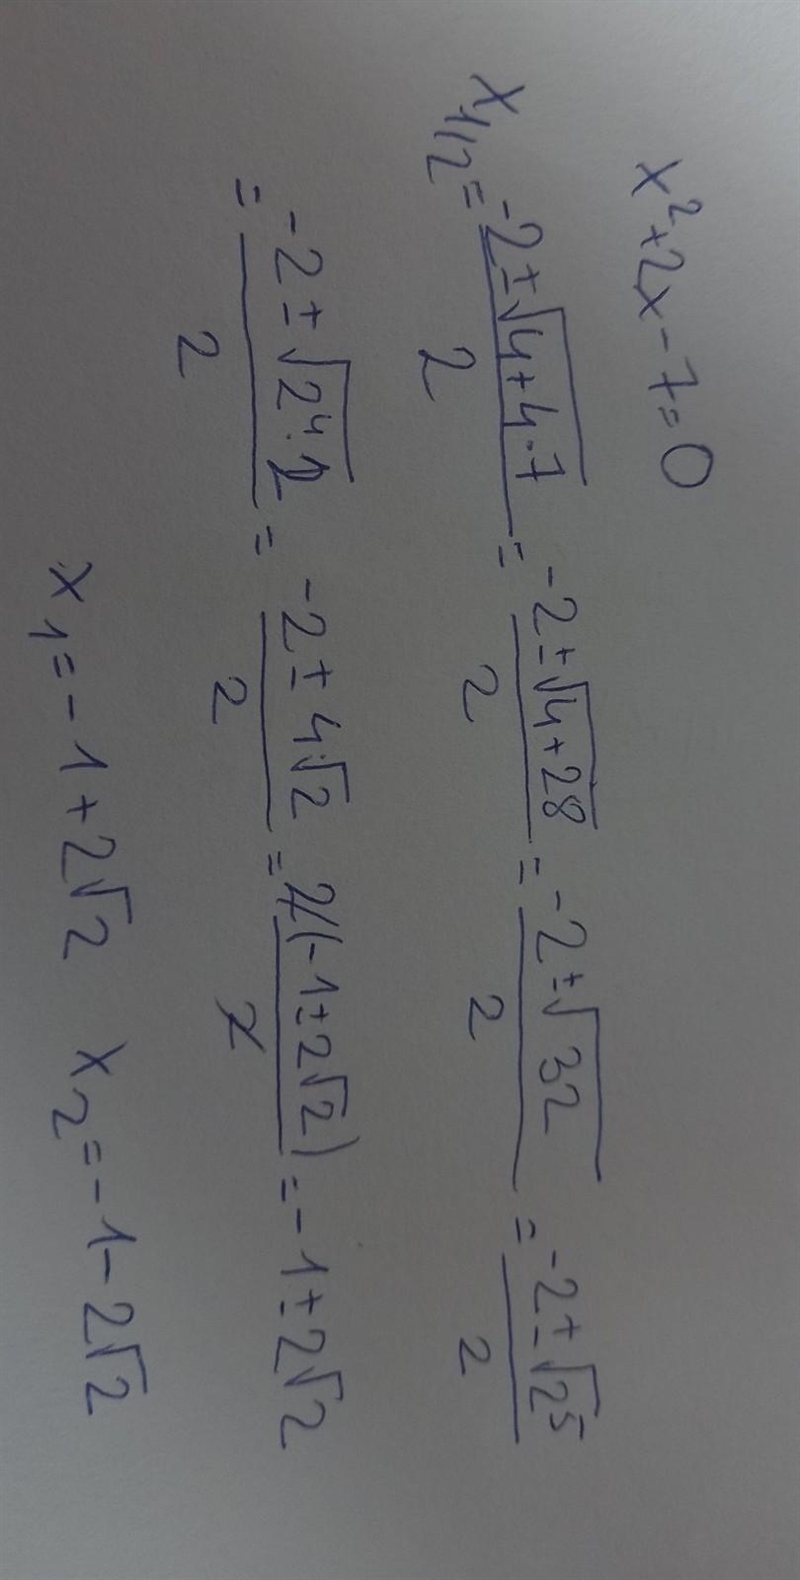 x²+2x-7=0
x₁/₂ = (-2±√(4+4·7))/2 = (-2±√(4+28))/2 = (-2±√32)/2 = (-2±√2⁵)/2
= (-2±√(2⁴·2))/2 = (-2±4√2)/2 = 2(-1±2√2)/2 = -1±2√2
x₁=-1+2√2 x₂=-1-2√2